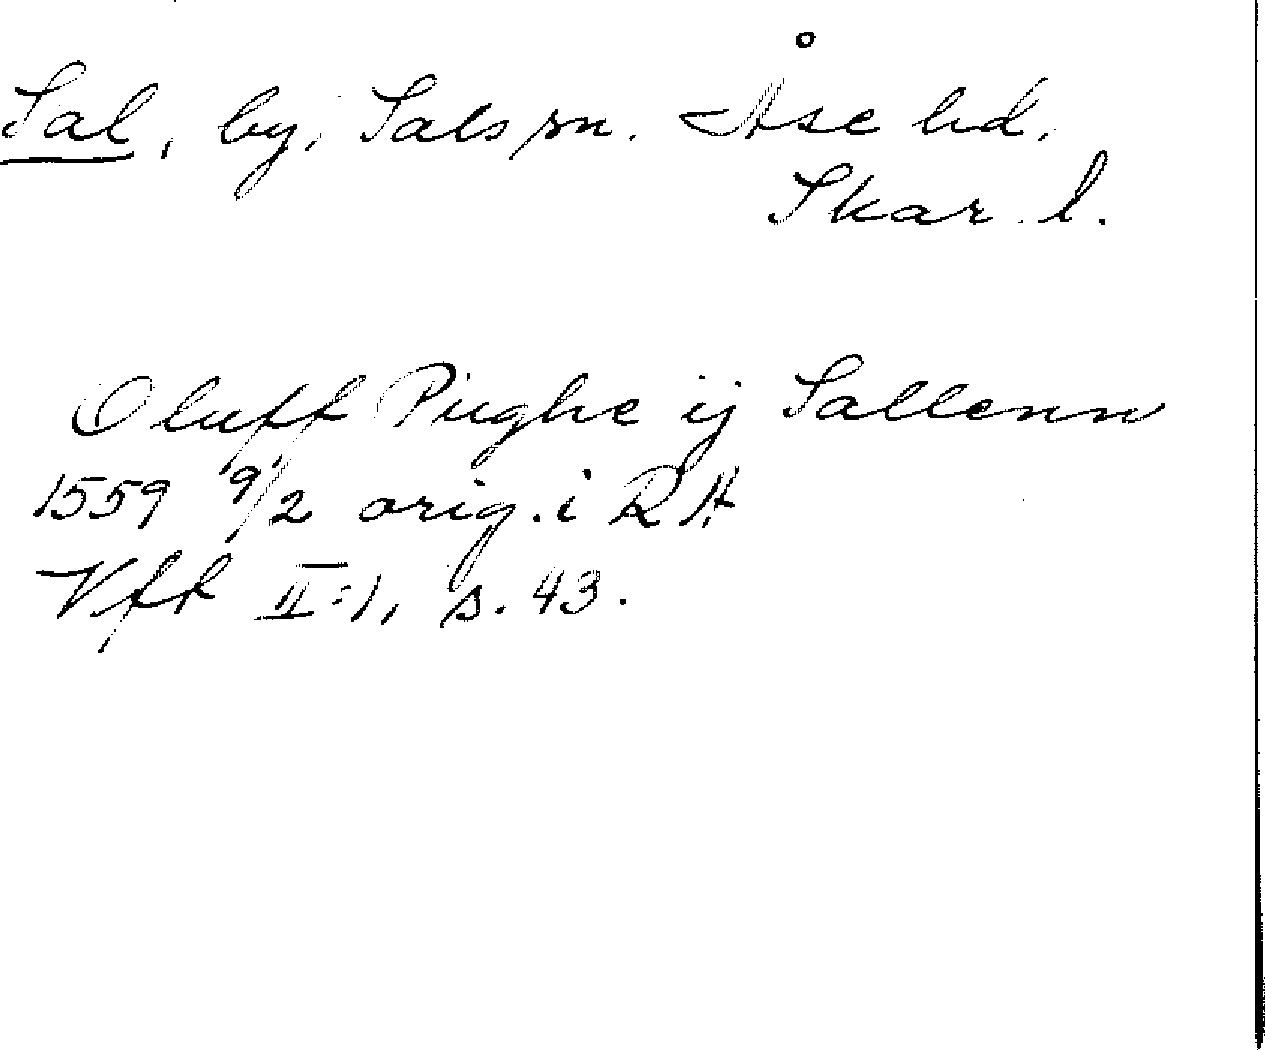 Sal, by, Sals sn. Åse hd.
Skar. l.
Oluff Pughe ij Sallenn
1559 9/2 orig. i RA
Vff II:1, s. 43.